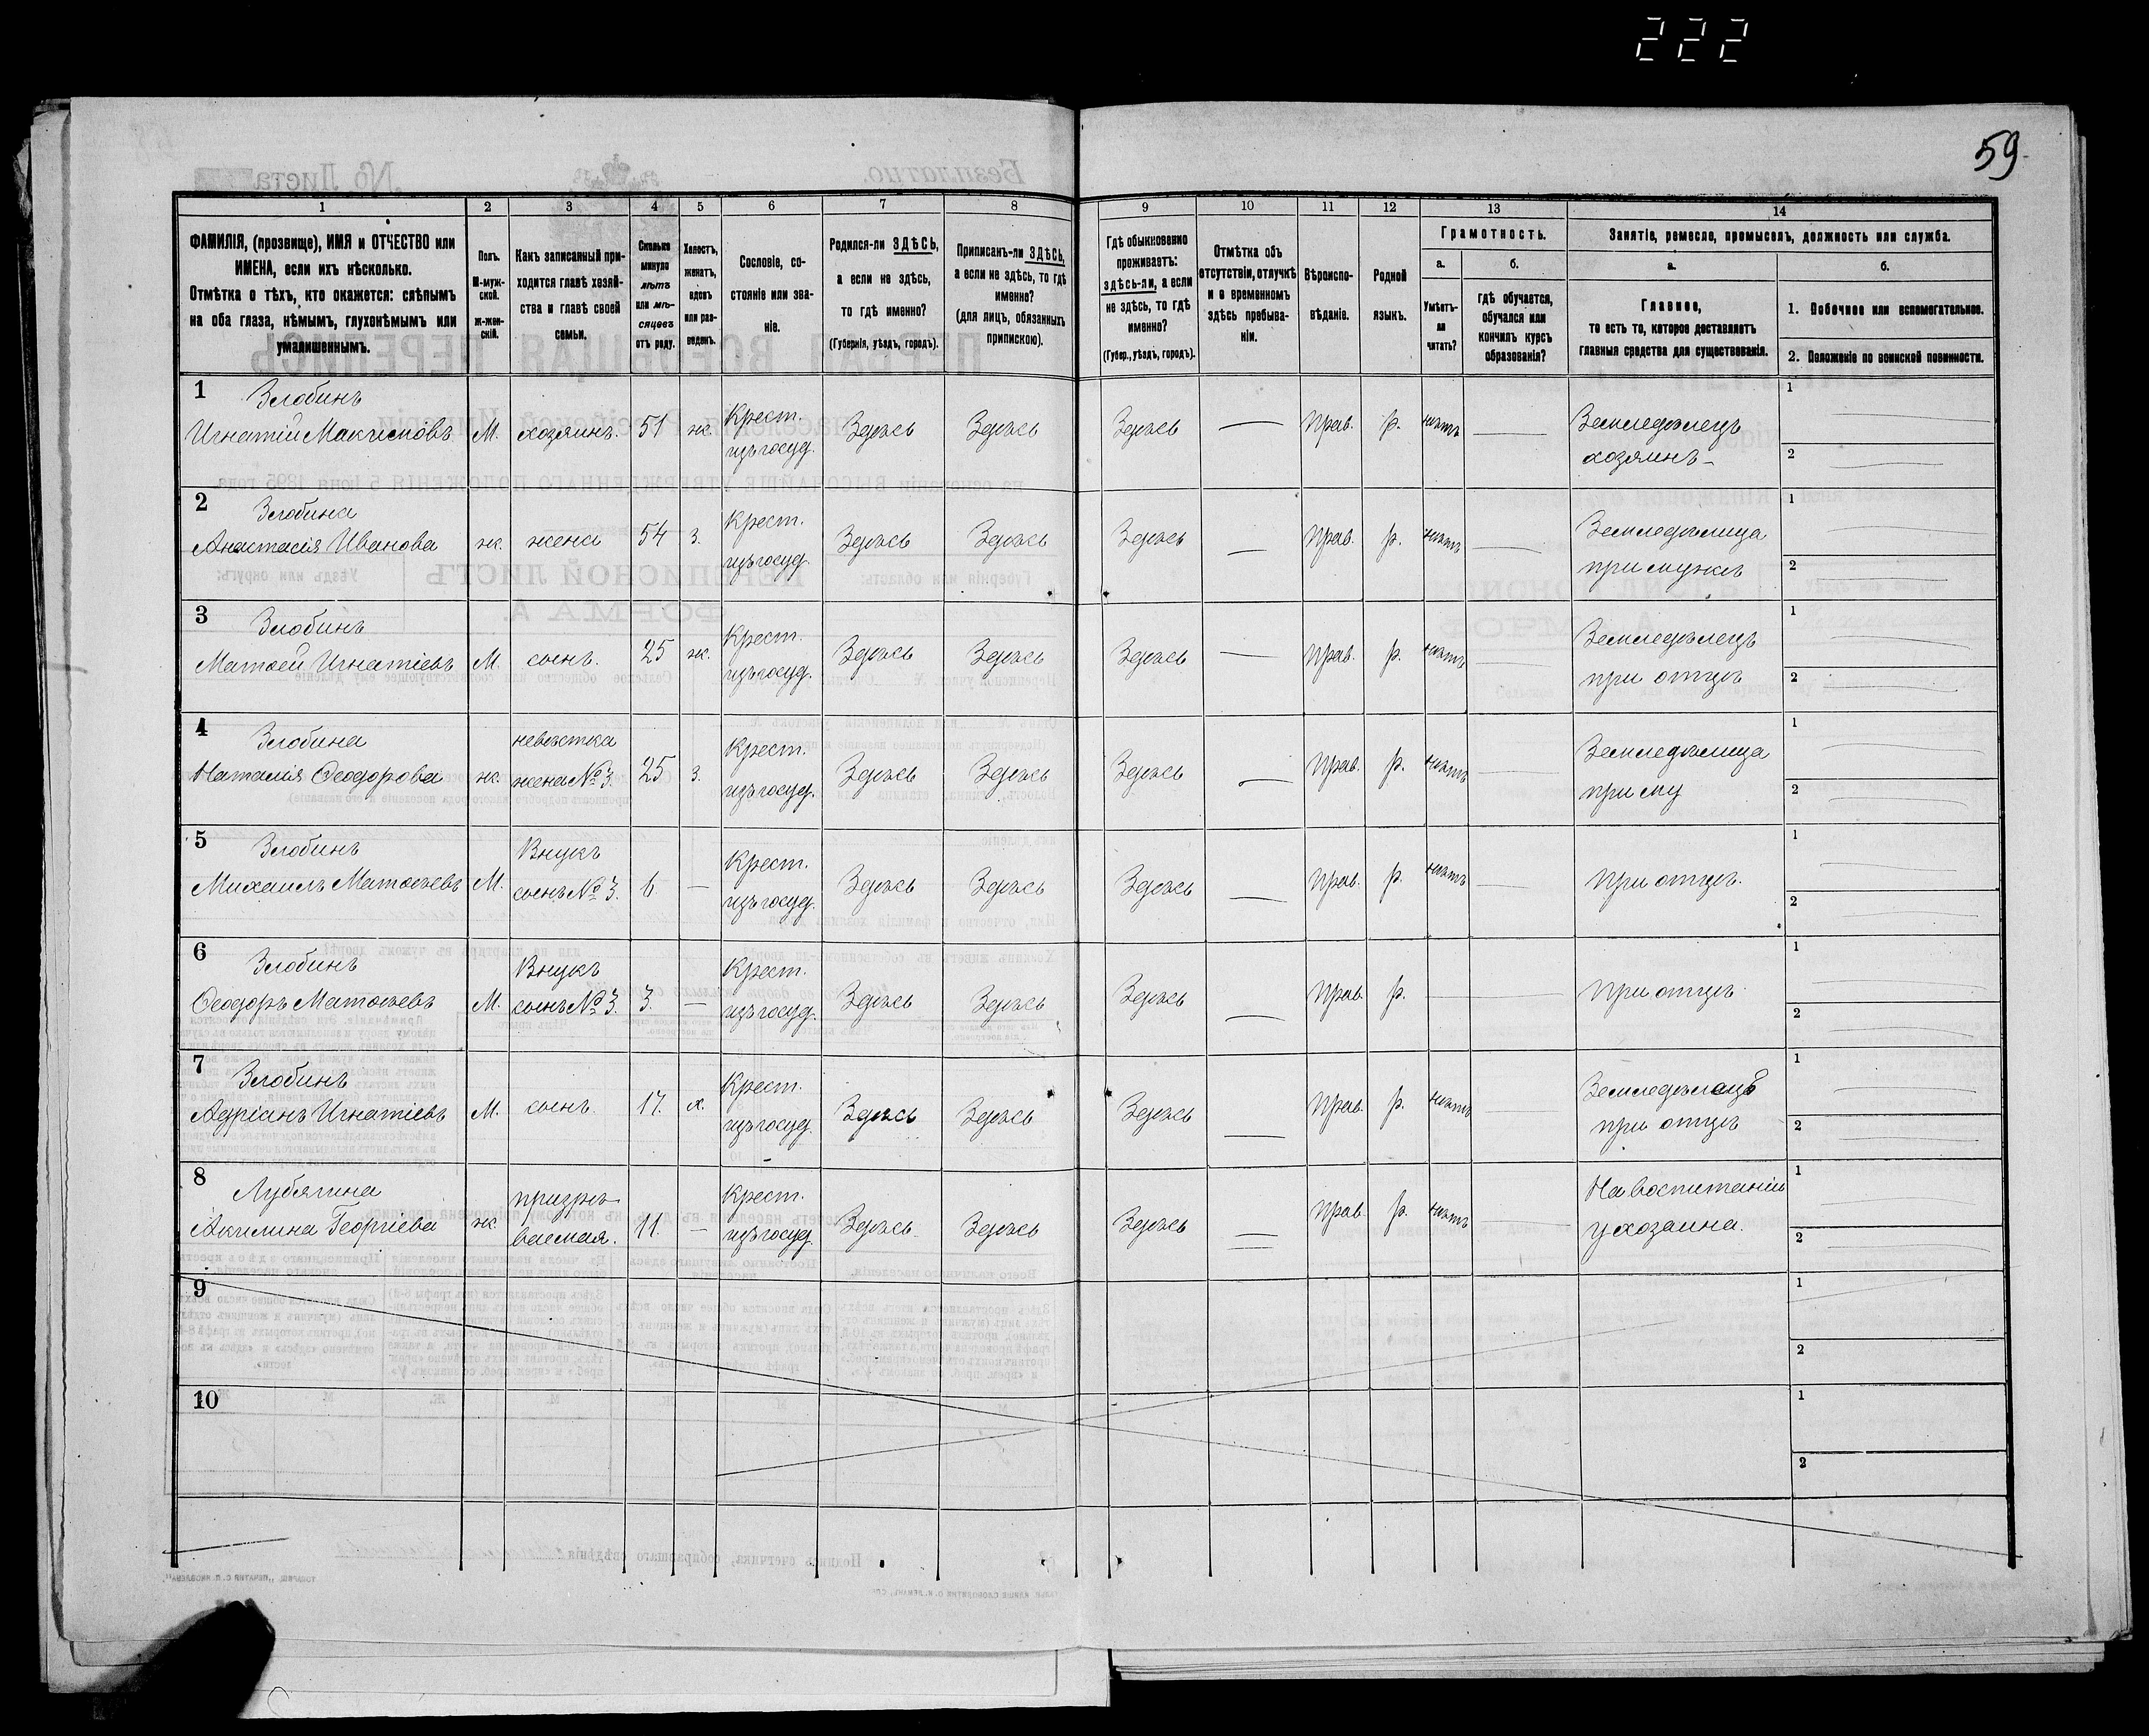 222
59
1 2 3 4 5 6 7 8 9 10 11 12 13 14
ФАМИЛІЯ, (прозвище), ИМЯ и ОТЧЕСТВО или
ИМЕНА, если ихъ нѣсколько.
Отмѣтка о тѣхъ, кто окажется: слѣпымъ
на оба глаза, нѣмымъ, глухонѣмымъ или
умалишеннымъ.
Полъ.
М-муж-
ской.
ж-жен-
скій.
Какъ записанный при-
ходится главѣ хозяй-
ства и главѣ своей
семьи.
Сколько
минуло
лѣтъ
или мѣ-
сяцевъ
отъ роду.
Холостъ,
женатъ,
вдовъ
или раз-
веденъ.
Сословіе, со-
стояніе или зва-
ніе.
Родился-ли ЗДѢСЬ,
а если не здѣсь,
то гдѣ именно?
(Губернія, уѣздъ, городъ).
Приписанъ-ли ЗДѢСЬ,
а если не здѣсь, то гдѣ
именно?
(для лицъ, обязанныхъ
припискою).
Гдѣ обыкновенно
проживаетъ:
здѣсь-ли, а если
не здѣсь, то гдѣ
именно?
(Губер., уѣздъ, городъ).
Отмѣтка объ
отсутствіи, отлучкѣ
и о временномъ
здѣсь пребыва-
ніи.
Вѣроиспо-
вѣданіе.
Родной
языкъ.
Грамотность.
а.
Умѣетъ-
ли
читать?
б.
гдѣ обучается,
обучался или
кончилъ курсъ
образованія?
Занятіе, ремесло, промыселъ, должность или служба.
а.
Главное,
то есть то, которое доставляетъ
главныя средства для существованія.
б.
1. Побочное или вспомогательное.
2. Положеніе по воинской повинности.
1 Злобинъ Крест. Земледѣлецъ 1
Игнатій Максимовъ М. хозяинъ. 51 ж. изъ госуд. Здѣсь Здѣсь Здѣсь — Прав. р. нѣтъ — хозяинъ 2
2 Злобина Крест. Земледѣлица 1
Анастасія Иванова ж. жена 54 з. изъ госуд. Здѣсь Здѣсь Здѣсь — Прав. р. нѣтъ — при мужѣ 2
3 Злобинъ Крест. Земледѣлецъ 1
Матѳей Игнатіевъ М. сынъ. 25 ж. изъ госуд. Здѣсь Здѣсь Здѣсь — Прав. р. нѣтъ — при отцѣ 2
4 Злобина невѣстка Крест. Земледѣлица 1
Наталія Ѳеодорова ж. жена № 3. 25 з. изъ госуд. Здѣсь Здѣсь Здѣсь — Прав. р. нѣтъ — при му 2
5 Злобинъ Внукъ Крест. 1
Михаилъ Матѳѣевъ М. сынъ № 3. 6. — изъ госуд. Здѣсь Здѣсь Здѣсь — Прав. р. нѣтъ — при отцѣ. 2
6 Злобинъ Внукъ Крест. 1
Ѳеодоръ Матѳѣевъ М. сынъ № 3. 3. — изъ госуд. Здѣсь Здѣсь Здѣсь — Прав. р. — при отцѣ 2
7 Злобинъ Крест. Земледѣлецъ 1
Адріанъ Игнатіевъ М. сынъ. 17. х. изъ госуд. Здѣсь Здѣсь Здѣсь — Прав. р. нѣтъ — при отцѣ 2
8 призрѣ- Крест. На воспитаніи 1
Акилина Георгіева ж. ваемая. 11. — изъ госуд. Здѣсь Здѣсь Здѣсь — Прав. р. нѣтъ — у хозяина. 2
9 1
2
10 1
2